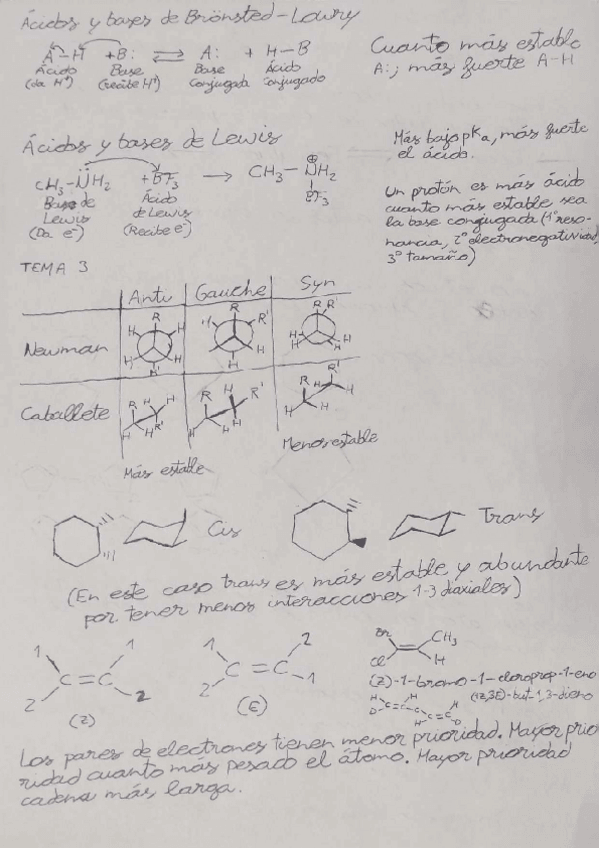 Ácidos y bases de Brönsted-Lowry
A-H + B: ⇌ A: + H-B
Ácido Base Base Ácido
(da H⁺) (recibe H⁺) Conjugada Conjugado
Cuanto más estable
A:; más fuerte A-H
Ácidos y bases de Lewis
CH₃-N̈H₂ + BF₃ → CH₃-NH₂
⊕
BF₃
Base de Ácido
Lewis de Lewis
(Da e⁻) (Recibe e⁻)
Más bajo pKa, más fuerte
el ácido.
Un protón es más ácido
cuanto más estable sea
la base conjugada (1º reso-
nancia, 2º electronegatividad,
3º tamaño)
TEMA 3
Anti Gauche Syn
Newman
R H H H H R'
H R R' H H
R R' H H H H
Caballete
R H H H R'
R H R' H H
R R' H H H
Más estable
Menos estable
Cis
Trans
(En este caso trans es más estable y abundante
por tener menos interacciones 1-3 diaxiales)
1 1
C=C
2 2
(Z)
1 2
C=C
2 1
(E)
Br CH₃
Cl H
(Z)-1-bromo-1-cloroprop-1-eno
(1Z,3E)-but-1,3-dieno
H C=C H
D C=C H
H D
Los pares de electrones tienen menor prioridad. Mayor prio
ridad cuanto más pesado el átomo. Mayor prioridad
cadena más larga.